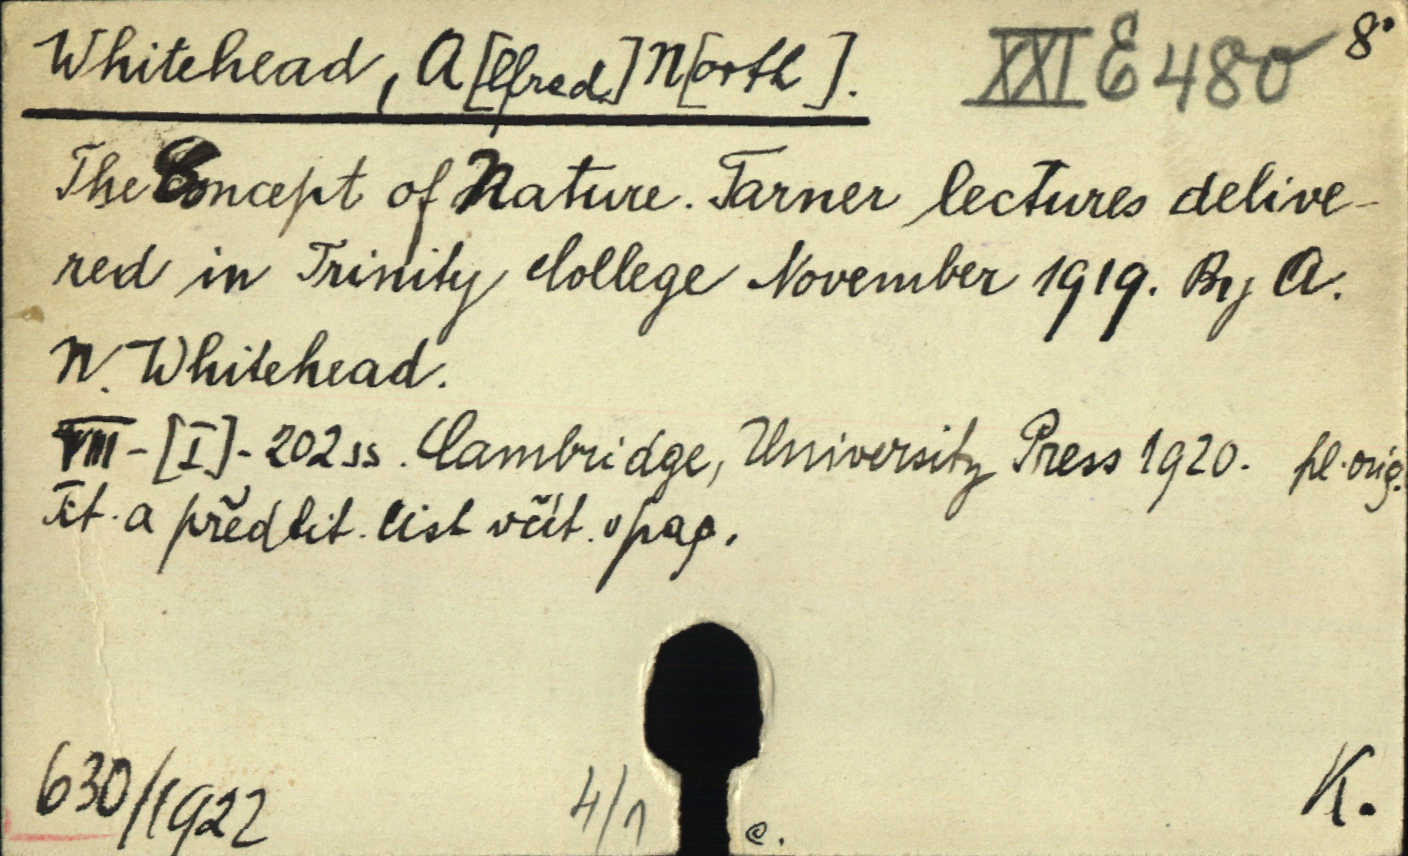 Whitehead, A[lfred] N[orth]. XXI E 480 8°
The Concept of Nature. Tarner lectures delive-
red in Trinity College November 1919. By A.
N. Whitehead.
VIII-[I]-202 ss. Cambridge, University Press 1920. pl. orig.
Tit. a předtit. list včít. v pag.
630/1922 4/1 e. K.